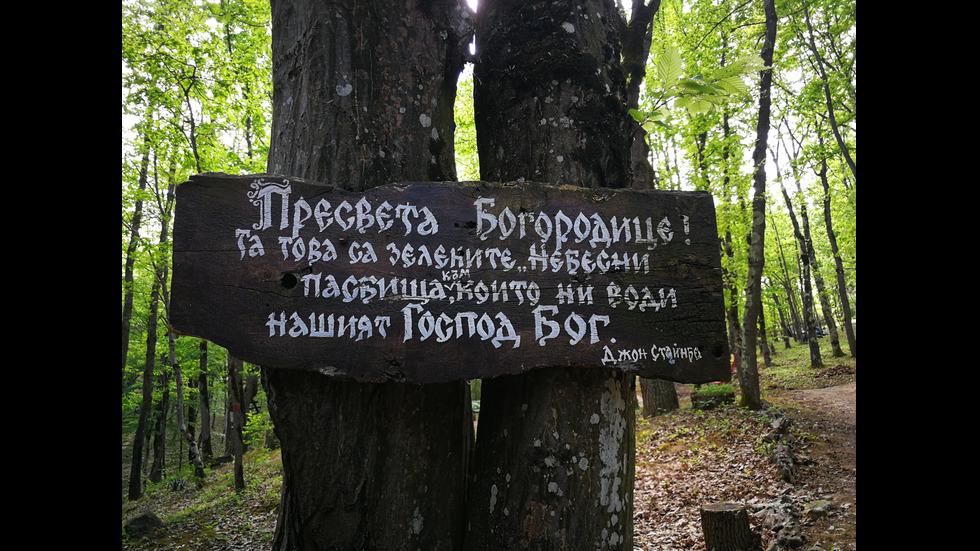 Пресвета Богородице!
та това са зелените „небесни
пасбища“, към които ни води
нашият Господ Бог.
Джон Стайнба